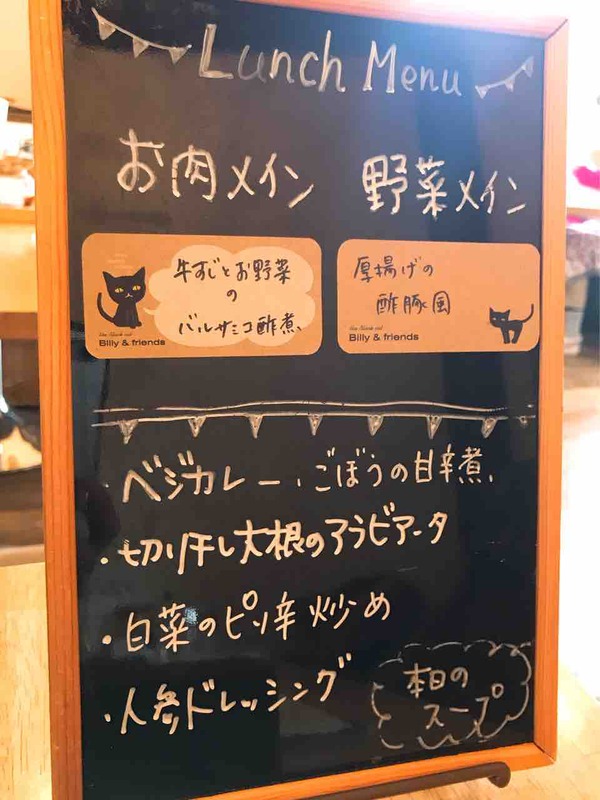 Lunch Menu
お肉メイン
野菜メイン
牛すじとお野菜
の
バルサミコ酢煮
Billy & friends
厚揚げの
酢豚風
Billy & friends
・ベジカレー ・ごぼうの甘辛煮
・切り干し大根のアラビアータ
・白菜のピリ辛炒め
・人参ドレッシング
本日の
スープ